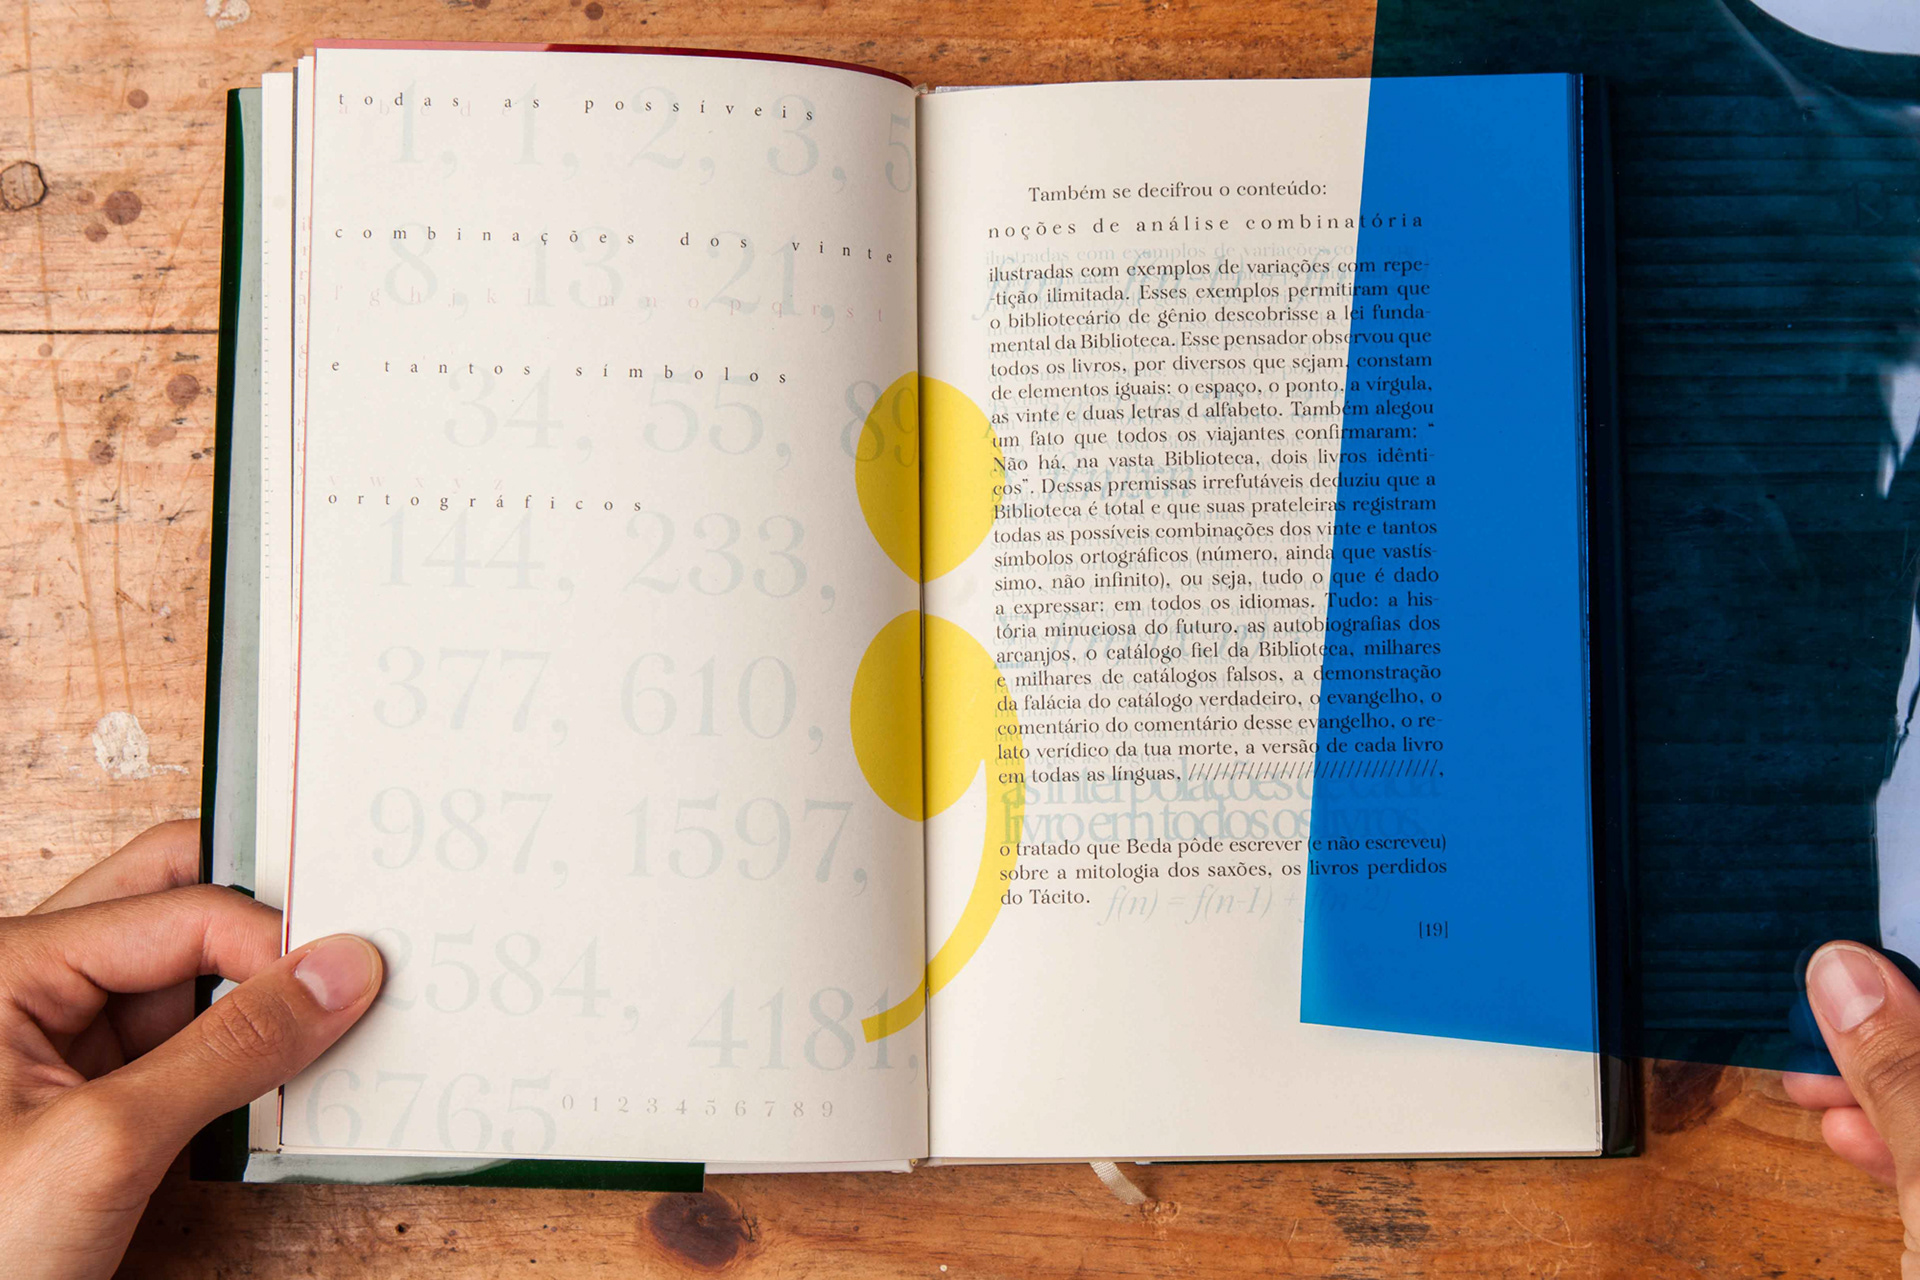 todas as possíveis
1, 1, 2, 3, 5
combinações dos vinte
8, 13, 21,
g h j k l m n o p q r s t
e tantos símbolos
34, 55, 89
v w x y z
ortográficos
144, 233,
377, 610,
987, 1597,
2584,
4181,
6765
0 1 2 3 4 5 6 7 8 9
;
Também se decifrou o conteúdo:
noções de análise combinatória
ilustradas com exemplos de variações com repe-
-tição ilimitada. Esses exemplos permitiram que
o bibliotecário de gênio descobrisse a lei funda-
mental da Biblioteca. Esse pensador observou que
todos os livros, por diversos que sejam, constam
de elementos iguais: o espaço, o ponto, a vírgula,
as vinte e duas letras d alfabeto. Também alegou
um fato que todos os viajantes confirmaram: “
Não há, na vasta Biblioteca, dois livros idênti-
cos”. Dessas premissas irrefutáveis deduziu que a
Biblioteca é total e que suas prateleiras registram
todas as possíveis combinações dos vinte e tantos
símbolos ortográficos (número, ainda que vastís-
simo, não infinito), ou seja, tudo o que é dado
a expressar: em todos os idiomas. Tudo: a his-
tória minuciosa do futuro, as autobiografias dos
arcanjos, o catálogo fiel da Biblioteca, milhares
e milhares de catálogos falsos, a demonstração
da falácia do catálogo verdadeiro, o evangelho, o
comentário do comentário desse evangelho, o re-
lato verídico da tua morte, a versão de cada livro
em todas as línguas, //////////////////////////////,
as interpolações de cada
livro em todos os livros,
o tratado que Beda pôde escrever (e não escreveu)
sobre a mitologia dos saxões, os livros perdidos
do Tácito.
f(n) = f(n-1) + f(n-2)
[19]